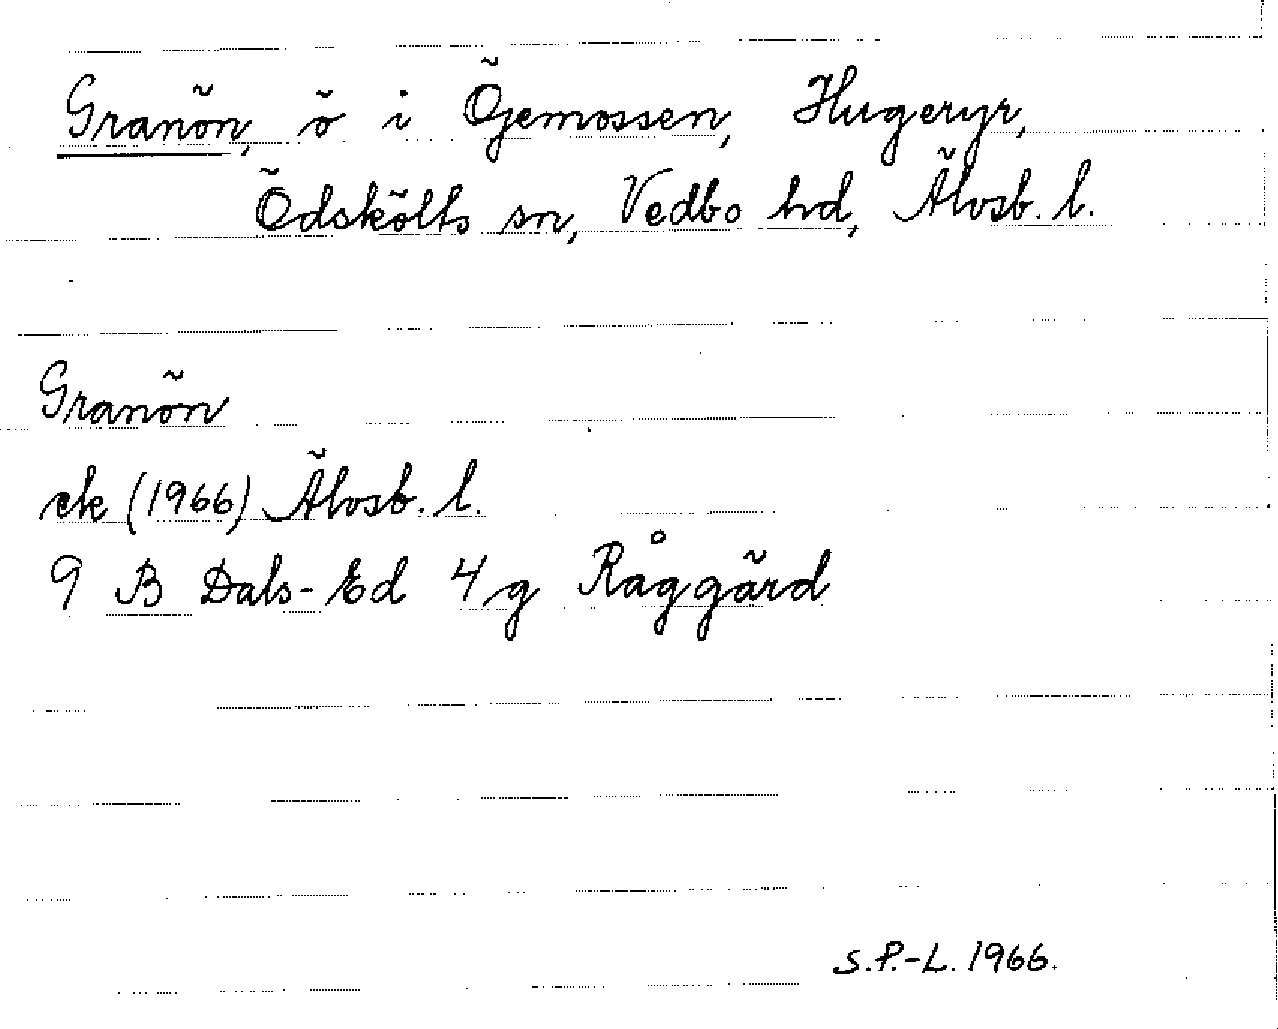 Granön, ö i Ögemossen, Hugeryr,
Ödskölts sn, Vedbo hd, Älvsb. l.
Granön
ek (1966) Älvsb. l.
9 B Dals-Ed 4g Råggärd
S.P.-L. 1966.